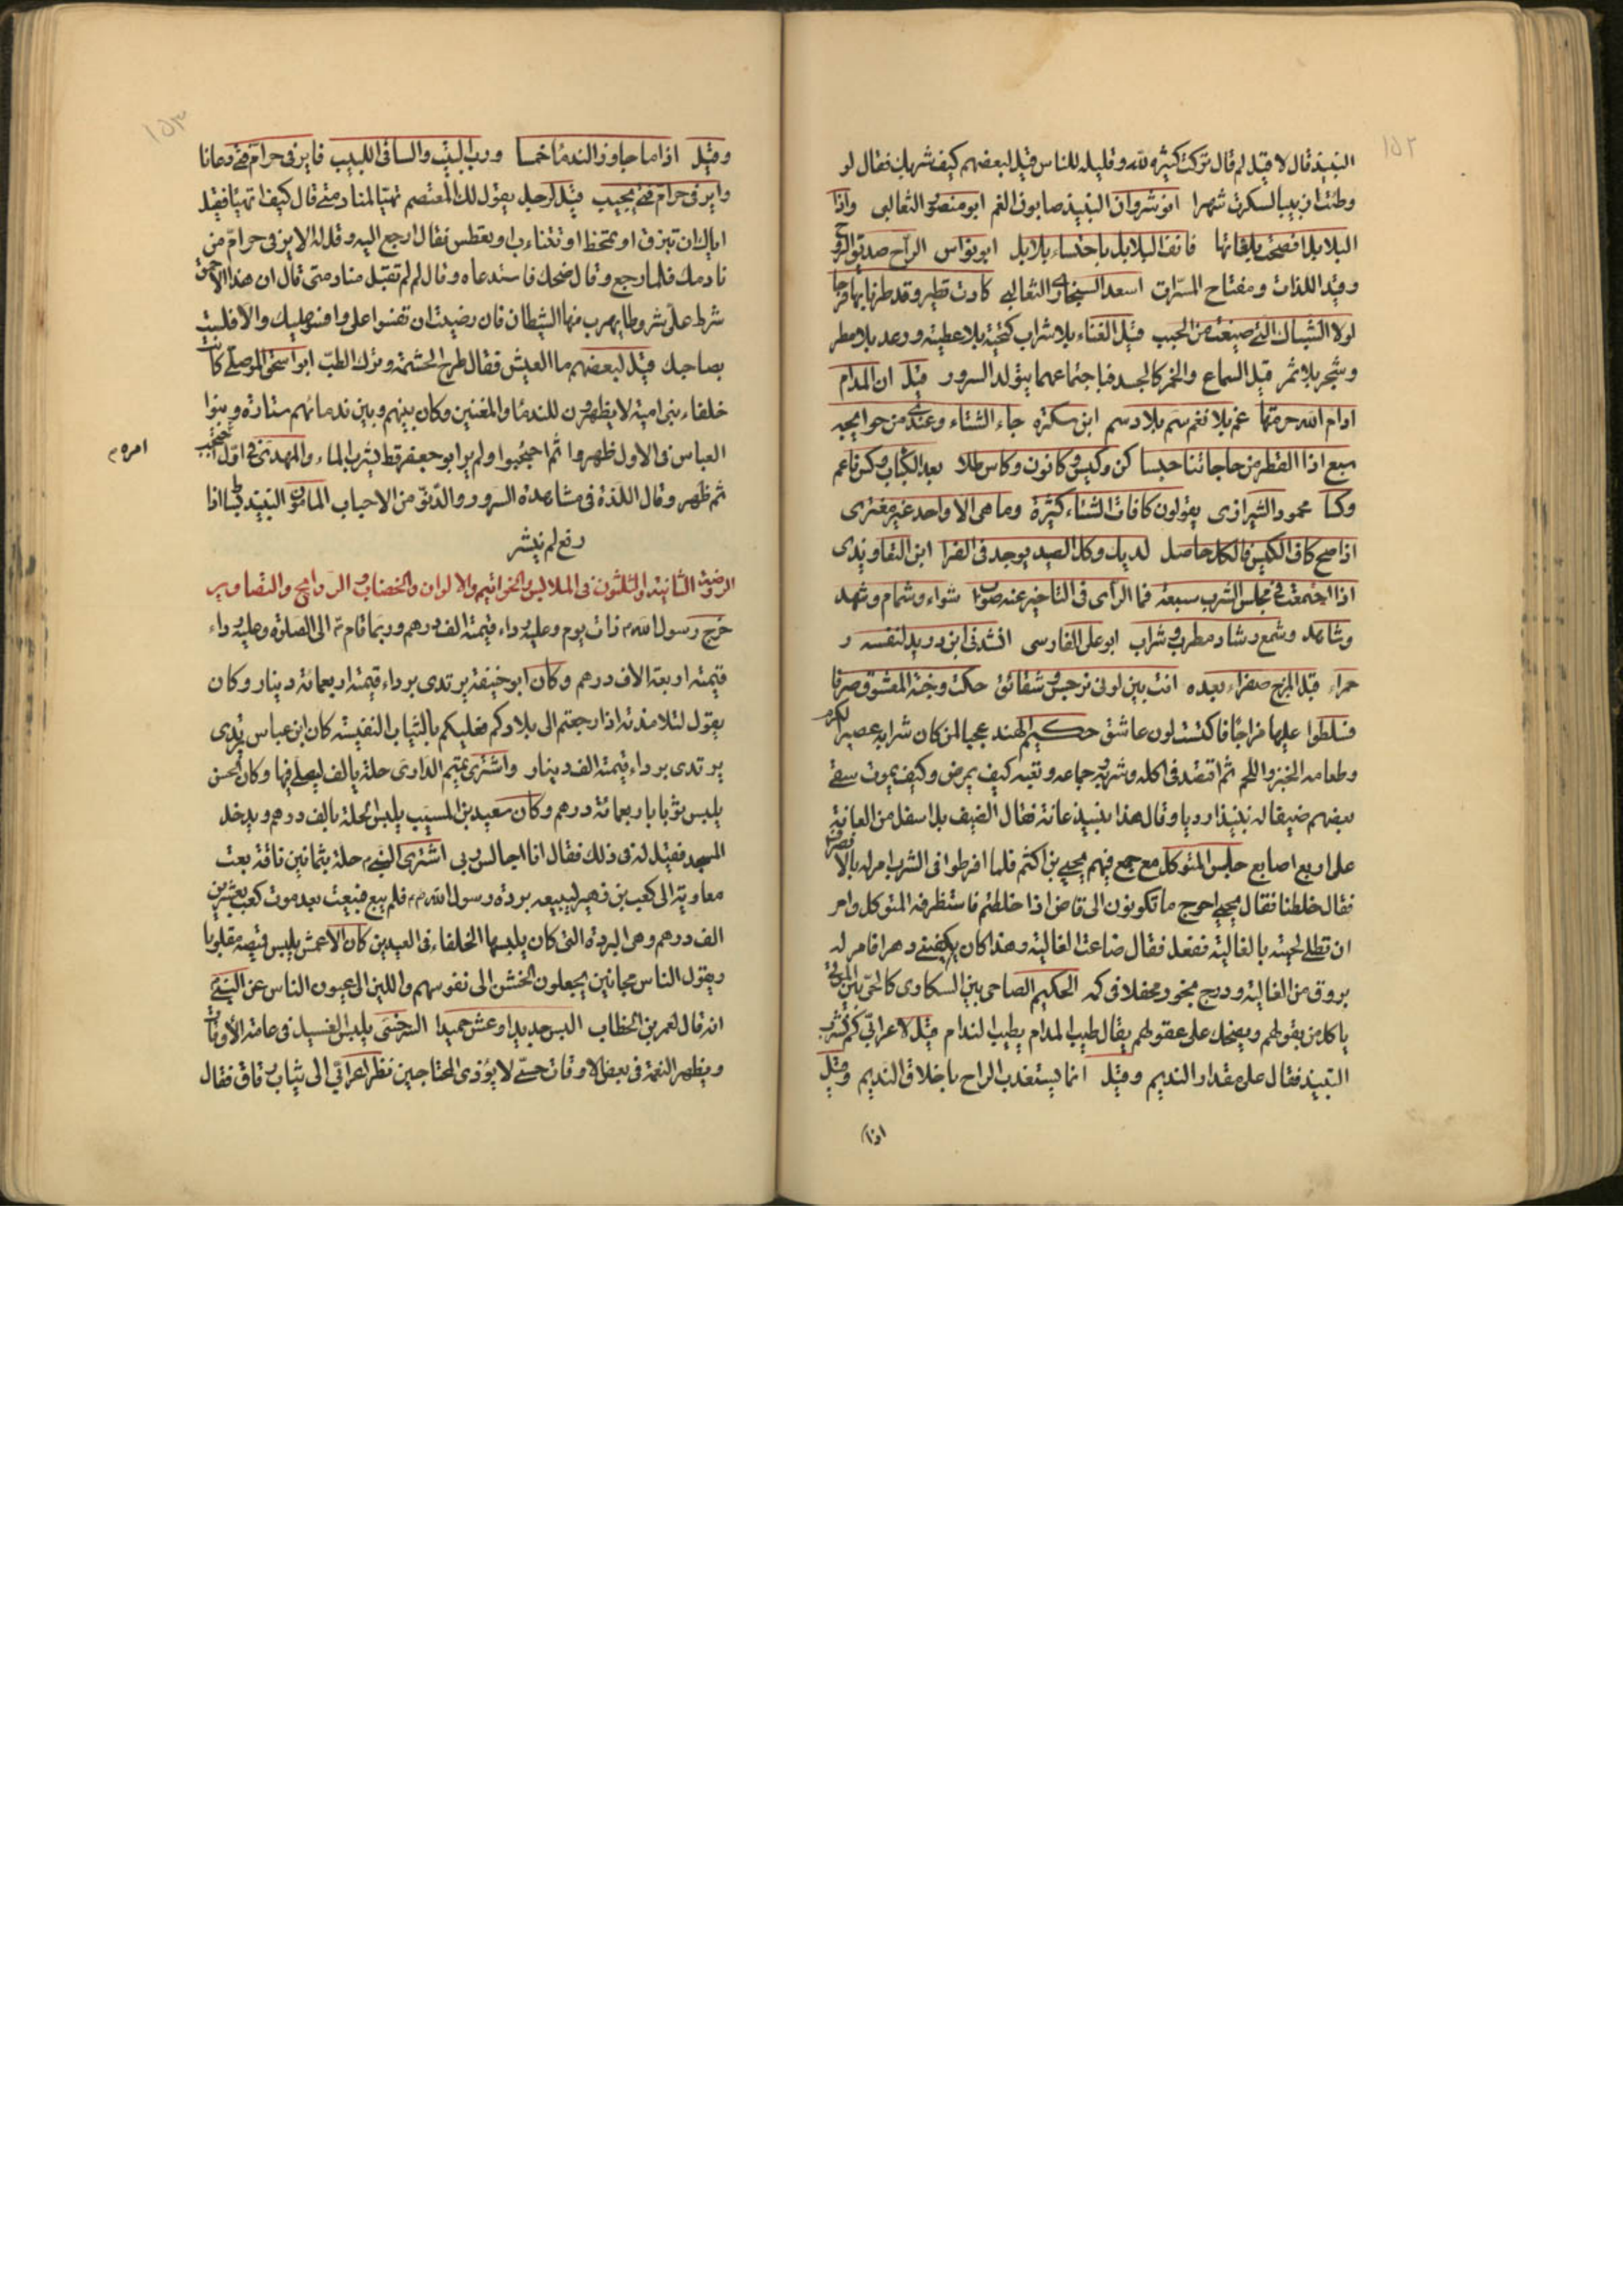 ١٥٢
النبيذ قال لا قيل لم قال تركت كثيره لله وقليله للناس قيل لبعضهم كيف شربك فقال لو
وطئت ارنبيا لسكرت شهرا انوشروان النبيذ صابون الغم ابو منصور الثعالبى واذا
البلابل افصحت بلغاتها فانف البلابل باحتساء بلابل ابو نواس الراح صديق الروح
وقيد اللذات ومفتاح المسرات اسعد السنجارى الثعالبى كادت تطير وقد طرنا بها فرحا
لولا الشباك التى صيغت من الحبب قيل الغناء بلا شراب كتحية بلا عطية ورعد بلا مطر
وشجر بلا ثمر قيل السماع والخمر كالجسد فباجتماعهما يتولد السرور قيل ان المدام
ادام الله حرمتها غم بلا نغم سم بلا دسم ابن سكرة جاء الشتاء وعندى من حوايجه
سبع اذا القطر من حاجاتنا حبسا كن وكيس وكانون وكاس طلا بعد الكباب وكس ناعم
وكسا محمود الشيرازى يقولون كافات الشتاء كثيرة وما هى الا واحد غير مفترى
اذا صح كاف الكيس فالكل حاصل لديك وكل الصيد يوجد فى الفرا ابن التعاويذى
اذا اجتمعت فى مجلس الشرب سبعة فما الراى فى التاخير عنه صواب شواء وشمام وشهد
وشاهد وشمع وشاد مطرب وشراب ابو على الفارسى انشدنى ابن دريد لنفسه و
حمراء قبل المزج صفراء بعده اتت بين لونى نرجس وشقائق حكت وجنة المعشوق صرفا
فسلطوا عليها مزاجا فاكتست لون عاشق حكيم الهند عجبا لمن كان شرابه عصير الكرم
وطعامه الخبز واللحم ثم اقتصد فى اكله وشربه وجماعه وتعبه كيف يمرض وكيف يموت سقى
بعضهم ضيفا له نبيذا رديا وقال هذا نبيذ عانة فقال الضيف بل اسفل من العانة
على اربع اصابع جلس المتوكل مع جمع فيهم يحيى بن اكثم فلما افرطوا فى الشرب امر له بالا
فقال خلطنا فقال يحيى احوج ما تكونون الى قاض اذا خلطتم فاستظرفه المتوكل وامر
ان تطلى لحيته بالغالية ففعل فقال ضاعت الغالية وهذا كان يكفينى دهرا فامر له
بزورق من الغالية ودرج بخور فجعلا فى كمه الحكيم الصاحى بين السكارى كالحى بين الموتى
ياكل من بقولهم ويضحك على عقولهم يقال طيب المدام بطيب الندام قيل لاعرابى كم تشرب
النبيذ فقال على مقدار النديم وقيل انما يستعذب الراح باخلاق النديم وقيل
اذا
١٥٣
وقيل اذا ما جاوز الندما خمسا ورب البيت والساقى اللبيب فاير فى حرام فتى دعانا
واير فى حرام فتى يجيب قيل لرجل يقول لك المعتصم تهيا لمنادمتى قال كيف اتهيا فقيل
اياك ان تبزق او تمتخط او تتثاءب او تعطس فقال ارجع اليه وقل له الاير فى حرام من
نادمك فلما رجع وقال ضحك فاستدعاه وقال لم لم تقبل منادمتى قال ان هذا الاحمق
شرط على شروطا يهرب منها الشيطان فان رضيت ان تفسوا على وافسو عليك والا فلست
بصاحبك قيل لبعضهم ما العيش فقال طرح الحشمة وترك الطب ابو اسحق الموصلى كانت
خلفاء بنى امية لا يظهرون للندما والمغنين وكان بينهم وبين ندمائهم ستارة وبنوا
العباس فى الاول ظهروا ثم احتجبوا ولم ير ابو جعفر قط يشرب الماء والمهدى فى اول احتجب
امره م
ثم ظهر وقال اللذة فى مشاهدة السرور والدنو من الاحباب المامون النبيذ بساط اذا
رفع لم ينشر
الروضة الثانية والثلثون فى الملابس والخواتيم والالوان والخضاب والروايح والتصاوير
خرج رسول الله ص ذات يوم وعليه رداء قيمته الف درهم وربما قام ص الى الصلوة وعليه رداء
قيمته اربعة الاف درهم وكان ابو حنيفة يرتدى برداء قيمته اربعمائة دينار وكان
يقول لتلامذته اذا رجعتم الى بلادكم فعليكم بالثياب النفيسة كان ابن عباس يرتدى
يرتدى برداء قيمته الف دينار واشترى تميم الدارى حلة بالف ليصلى فيها وكان الحسن
يلبس ثوبا باربعمائة درهم وكان سعيد بن المسيب يلبس الحلة بالف درهم ويدخل
المسجد فقيل له فى ذلك فقال انا اجالس ربى اشترى النبى م حلة بثمانين ناقة بعث
معاوية الى كعب بن زهير ليبيعه بردة رسول الله ص فلم يبع فبيعت بعد موت كعب بعشرين
الف درهم وهى البردة التى كان يلبسها الخلفاء فى العيدين كان الاعمش يلبس قميصه مقلوبا
ويقول الناس مجانين يجعلون الخشن الى نفوسهم واللين الى عيون الناس عن النبى
انه قال لعمر بن الخطاب البس جديدا وعش حميدا السرخسى يلبس الغسيل فى عامة الاوقات
ويظهر النعمة فى بعض الاوقات حتى لا يؤذى المحتاجين نظر اعرابى الى ثياب رقاق فقال